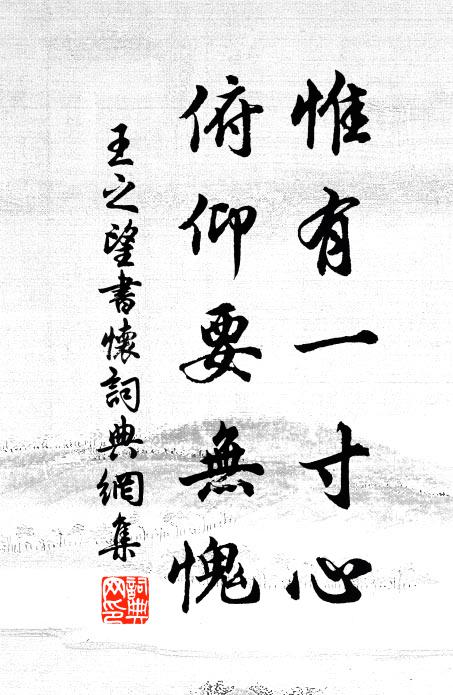 惟有一寸心
俯仰要無愧
王之望書懷詞典網集
詞典網印